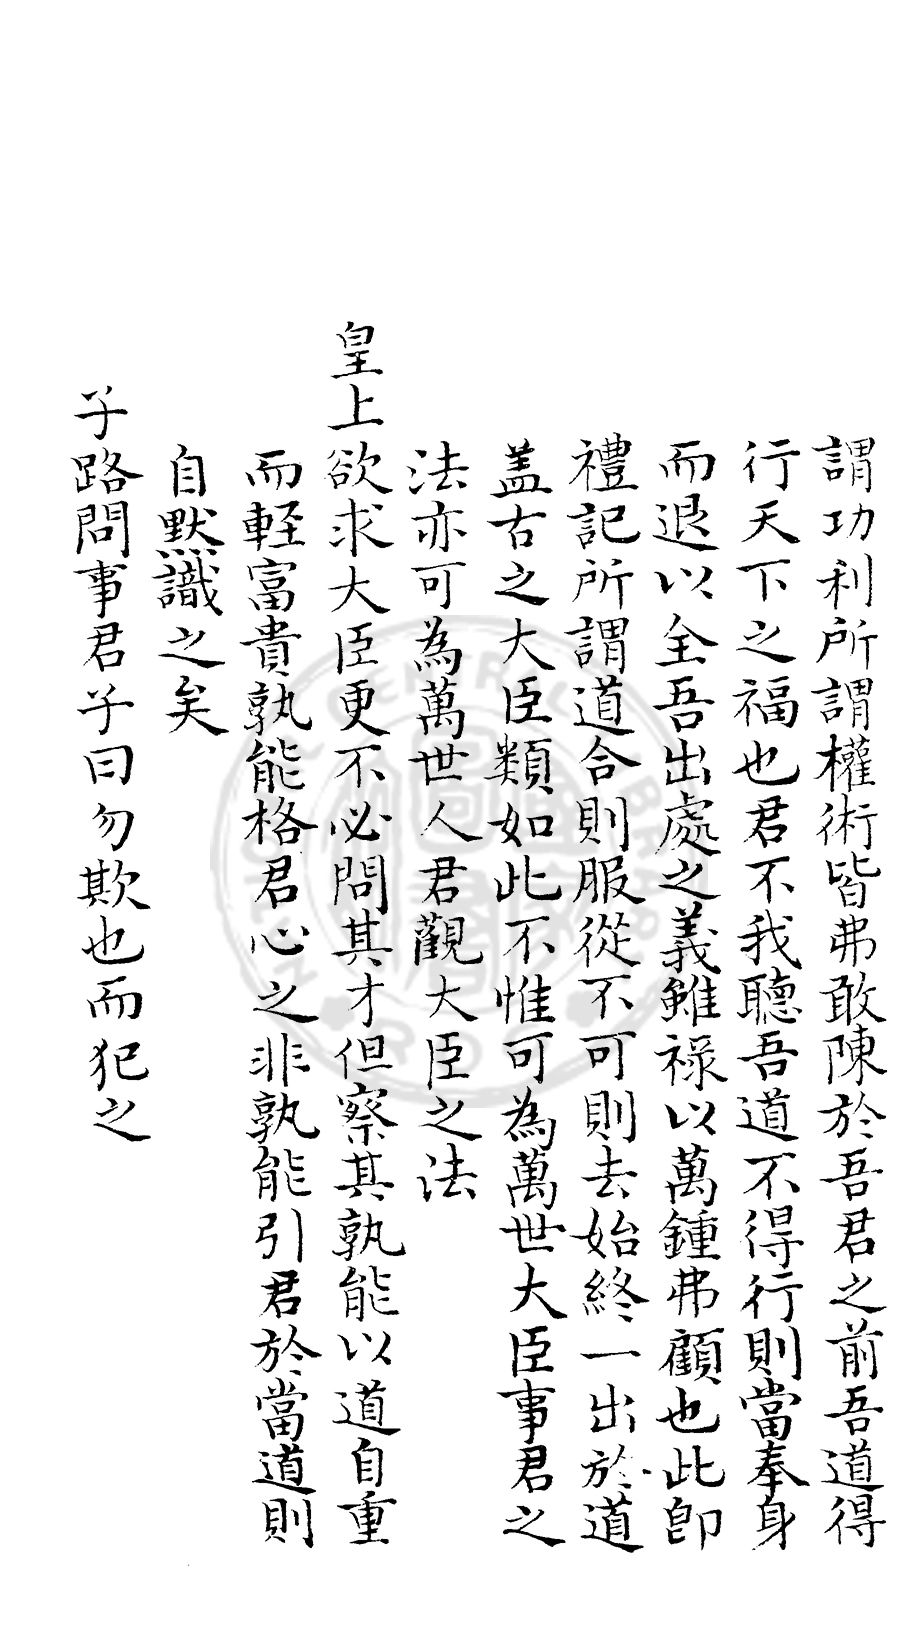 謂功利所謂權術皆弗敢陳於吾君之前吾道得
行天下之福也君不我聽吾道不得行則當奉身
而退以全吾出處之義雖祿以萬鍾弗顧也此即
禮記所謂道合則服從不可則去始終一出於道
盖古之大臣類如此不惟可為萬世大臣事君之
法亦可為萬世人君觀大臣之法
皇上欲求大臣更不必問其才但察其孰能以道自重
而軽富貴孰能格君心之非孰能引君於當道則
自默識之矣
子路問事君子曰勿欺也而犯之